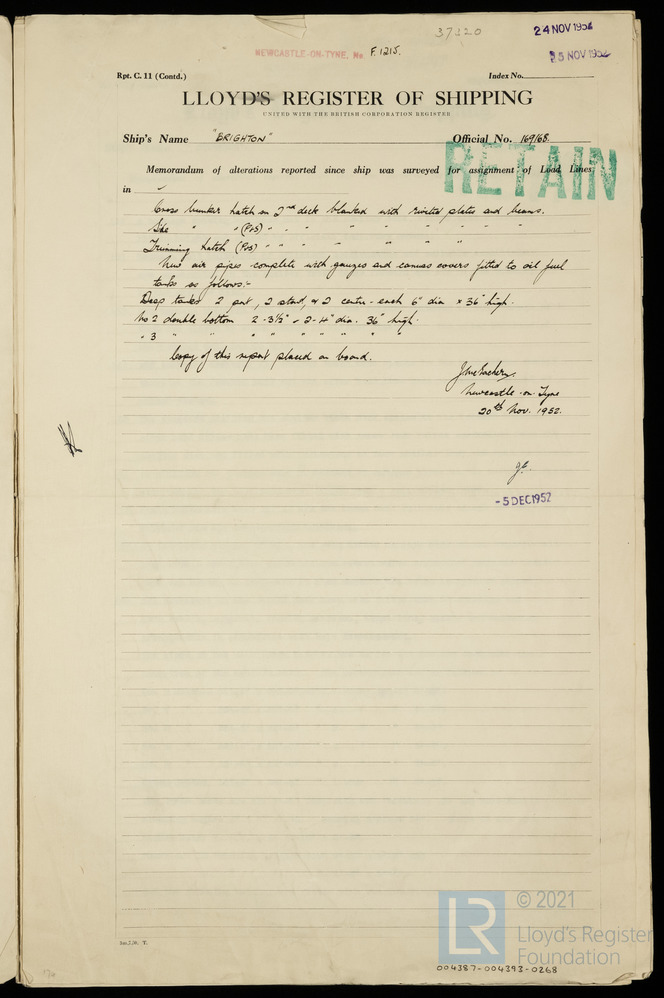 37320
24 NOV 1952
25 NOV 1952
NEWCASTLE-ON-TYNE. No. F.1215.
Rpt. C. 11 (Contd.)
Index No.
LLOYD'S REGISTER OF SHIPPING
UNITED WITH THE BRITISH CORPORATION REGISTER
Ship's Name "BRIGHTON" Official No. 169168.
RETAIN
Memorandum of alterations reported since ship was surveyed for assignment of Load Lines
in
Cross bunker hatch on 2nd deck blanked with riveted plates and beams.
Side " " (P&S) " " " " " " " "
Trimming hatch (P&S) " " " " " " "
New air pipes complete with gauzes and canvas covers fitted to oil fuel
tanks as follows:-
Deep tanks 2 port, 2 starbd, & 2 centre - each 6" dia × 36" high.
No 2 double bottom 2 - 3½" - 2 - 4" dia. 36" high.
" 3 " " " " " " " " "
Copy of this report placed on board.
Newcastle-on-Tyne
20th Nov. 1952.
-5 DEC 1952
© 2021
LR
Lloyd's Register
Foundation
004387-004393-0268